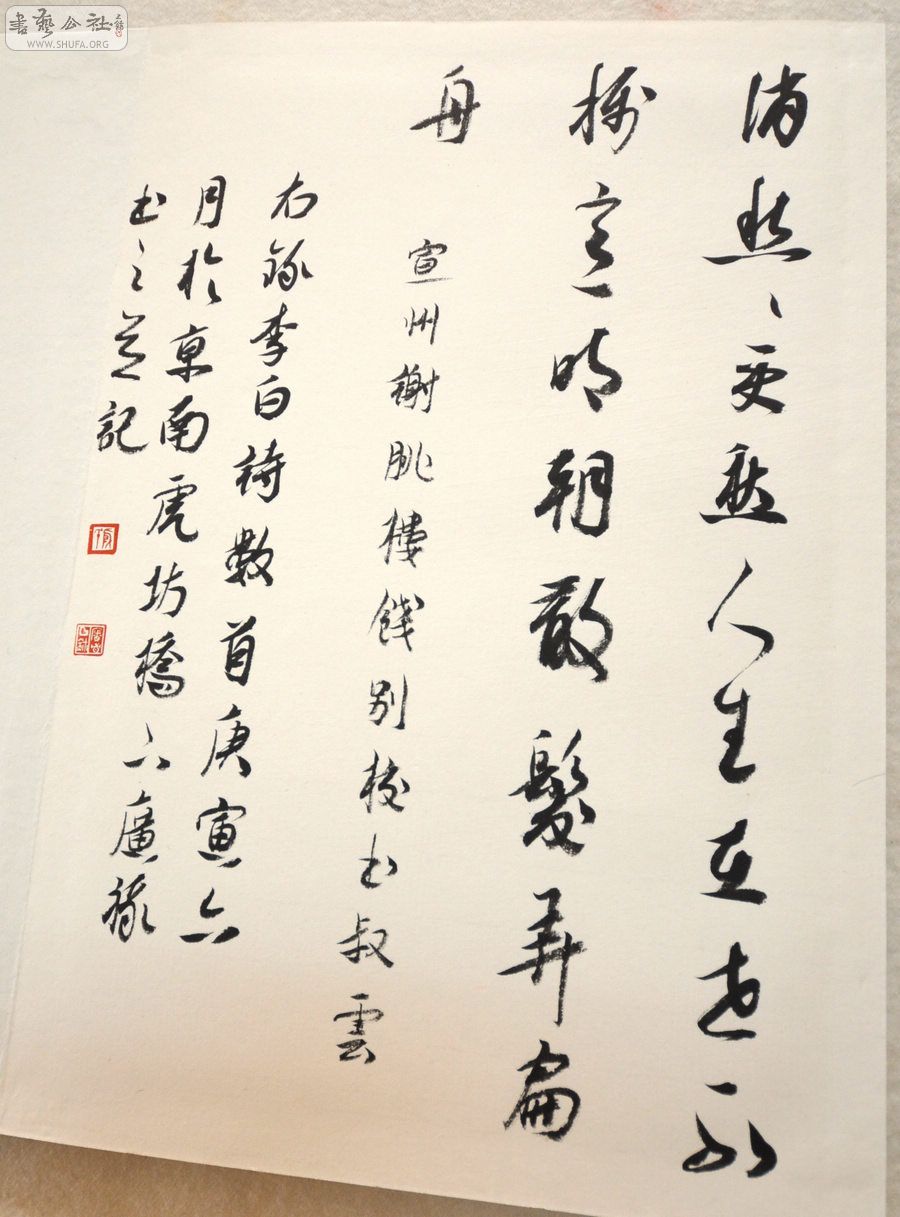 書藝公社
WWW.SHUFA.ORG
消愁〻更愁人生在世不
稱意明朝散髮弄扁
舟
宣州謝朓樓餞別校書叔雲
右錄李白詩數首庚寅六
月於京南虎坊橋下廣
書之並記